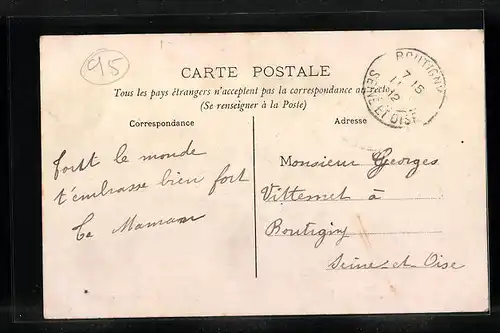 95
CARTE POSTALE
Tous les pays étrangers n'acceptent pas la correspondance au recto
(Se renseigner à la Poste)
BOUTIGNY
7 15
12
SEINE ET OISE
Correspondance
tout le monde
t'embrasse bien fort
Ta Maman
Adresse
Monsieur Georges
à
Boutigny
Seine-et-Oise